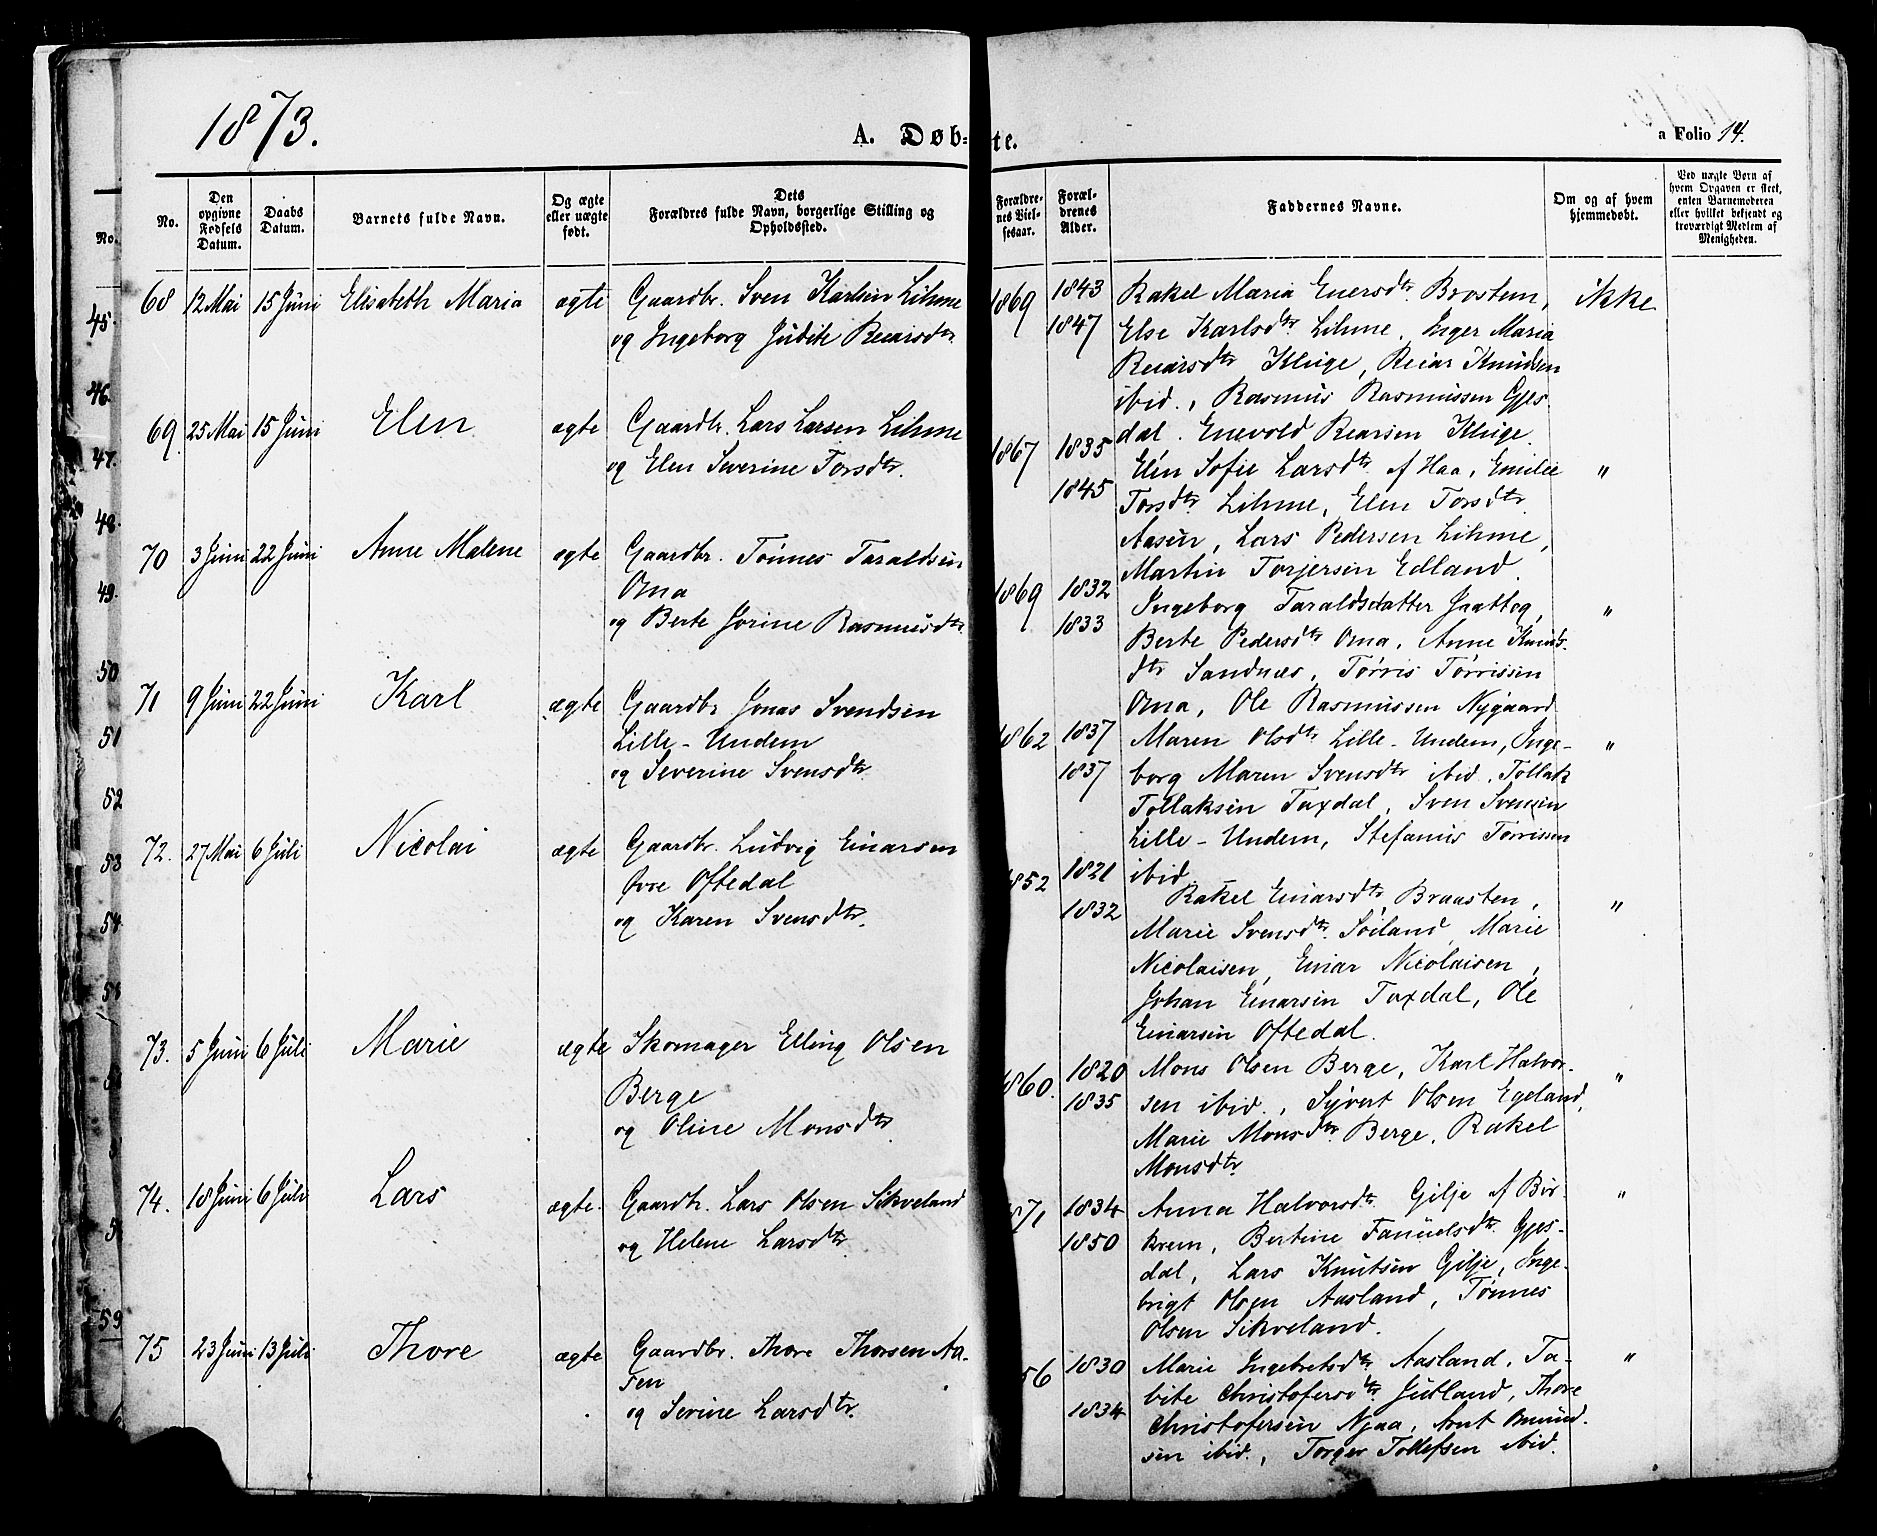 1873.
A. Døb-te.
a Folio 14.
No.
Den opgivne Fødsels Datum.
Daabs Datum.
Barnets fulde Navn.
Og ægte eller uægte født.
Dets Forældres fulde Navn, borgerlige Stilling og Opholdssted.
Forældrenes Vielsesaar.
Forældrenes Alder.
Faddernes Navne.
Om og af hvem hjemmedøbt.
Ved uægte Børn af hvem Opgaven er skeet, enten Barnemoderen eller hvilket bekjendt og troværdigt Medlem af Menigheden.
No.
45.
46.
47.
48.
49.
50
51
52
53
54
59
68 12 Mai 15 Juni Elisabeth Maria ægte Gaardbr. Sven Karlsen Lihme
og Ingeborg Judith Reiarsdtr
1869 1843
1847
Rakel Maria Enersdtr. Brosten,
Else Karlsdtr Lihme, Inger Maria
Reiarsdtr Kluge, Reiar Knudsen
ibid., Rasmus Rasmussen Gjes-
dal. Enevold Rearsen Kluge.
ikke
69. 25 Mai 15 Juni Elen ægte Gaardbr. Lars Larsen Lihme
og Elen Severine Torsdtr.
1867 1835
1845
Elen Sofie Larsdtr. af Haa, Emilie
Torsdtr Lihme, Elen Torsdtr
Aasen, Lars Pedersen Lihme,
Martin Torjersen Edland.
"
70 3 Juni 22 Juni Anne Malene ægte Gaardbr. Tönnes Taraldsen
Oma
og Berte Jorine Rasmusdtr.
1869 1832
1833
Ingeborg Taraldsdatter Gaatteg,
Berte Pedersdtr Oma, Anne Knuds-
dtr Sandnæs, Tørris Tørrissen
Oma, Ole Rasmussen Nygaard
"
71 9 Juni 22 Juni Karl ægte Gaardbr Jonas Svendsen
Lille-Undem
og Severine Svensdtr.
1862 1837
1837
Maren Olsdtr Lille-Undem, Inge-
borg Maren Svensdtr ibid. Tollak
Tollaksen Taxdal, Sven Svensen
Lille-Undem, Stefanus Tørrissen
ibid.
"
72. 27 Mai 6 Juli Nicolai ægte Gaardbr. Ludvig Einarsen
Øvre Oftedal
og Karen Svensdtr.
1852 1821
1832
Rakel Einarsdtr, Braasten,
Marie Svensdtr. Søiland, Marie
Nicolaisen, Einar Nicolaisen,
Johan Einarsen Taxdal, Ole
Einarsen Oftedal.
"
73. 5 Juni 6 Juli Marie ægte Skomager Elling Olsen
Berge
og Oline Monsdtr.
1860. 1820
1835
Mons Olsen Berge, Karl Halvor-
sen ibid., Syvert Olsen Egeland,
Marie Monsdtr Berge, Rakel
Monsdtr.
"
74. 18 Juni 6 Juli Lars ægte. Gaardbr. Lars Olsen Sikveland
og Helene Larsdtr.
1871 1834
1850
Anna Halvorsdtr. Gilje af Bir-
krem, Bertine Fanuelsdtr. Gjes-
dal, Lars Knutsen Gilje, Inge-
brigt Olsen Aasland, Tönnes
Olsen Sikveland.
"
75 23 Juni 13 Juli Thore ægte Gaardbr. Thore Thorsen Aa-
sen
og Serine Larsdtr.
56 1830
1834
Marie Ingebretsdtr Aasland, Ta-
bite Christofersdtr. Jutland, Thore
Christofersen Njaa, Arnt Omund-
sen ibid., Torger Tollefsen ibid.
"